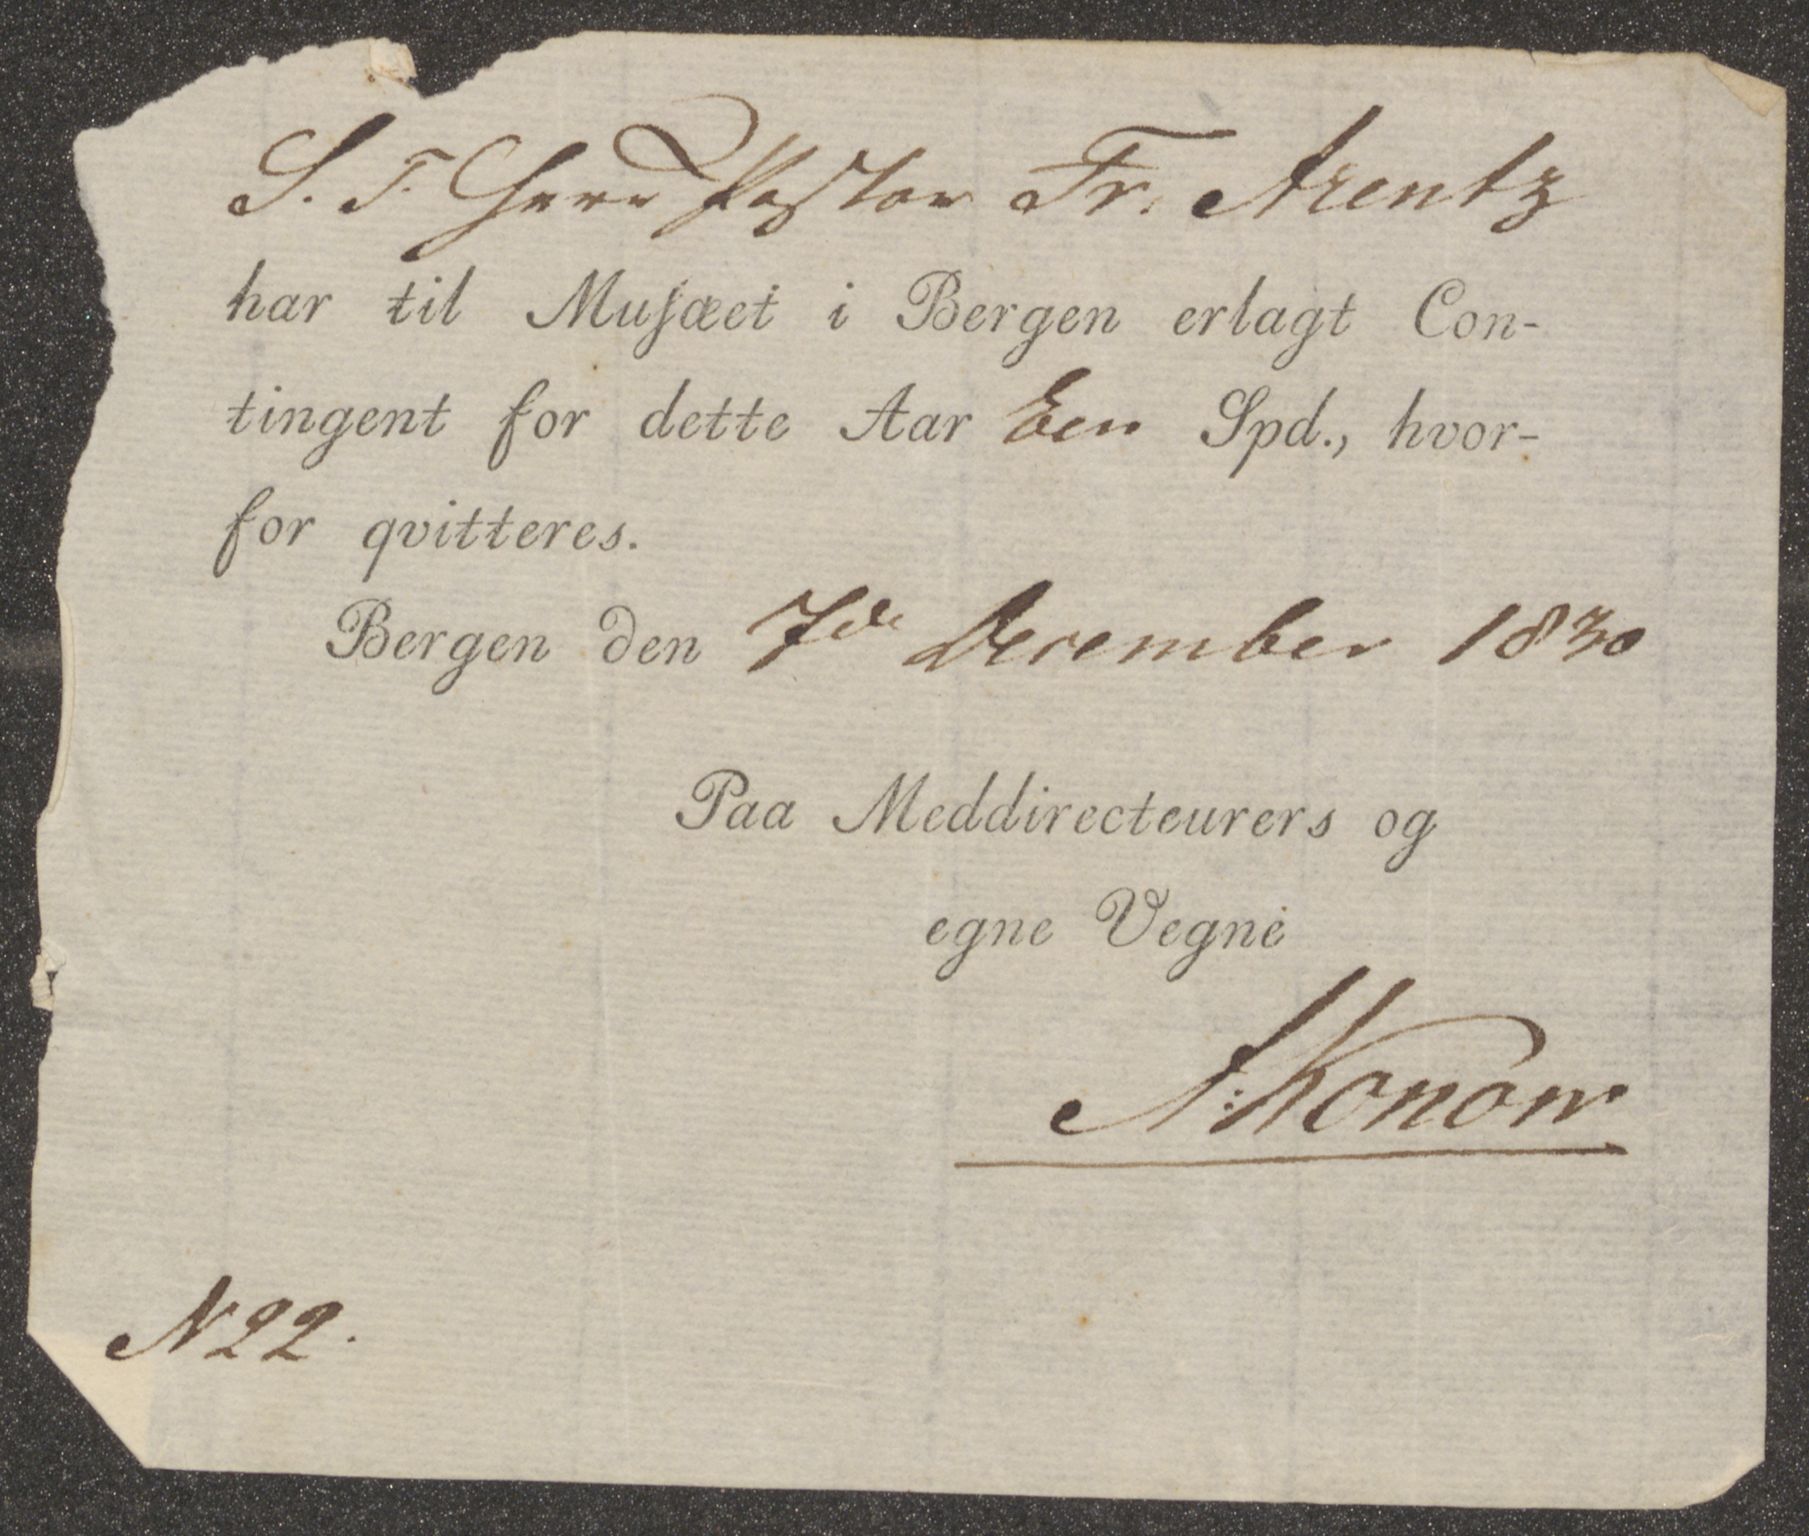 S. T. Herr Pastor Fr. Arentz
har til Muſæet i Bergen erlagt Con-
tingent for dette Aar Een Spd., hvor-
for qvitteres.
Bergen den 7de December 1830
Paa Meddirecteurers og
egne Vegne
A: Konow
N 22.